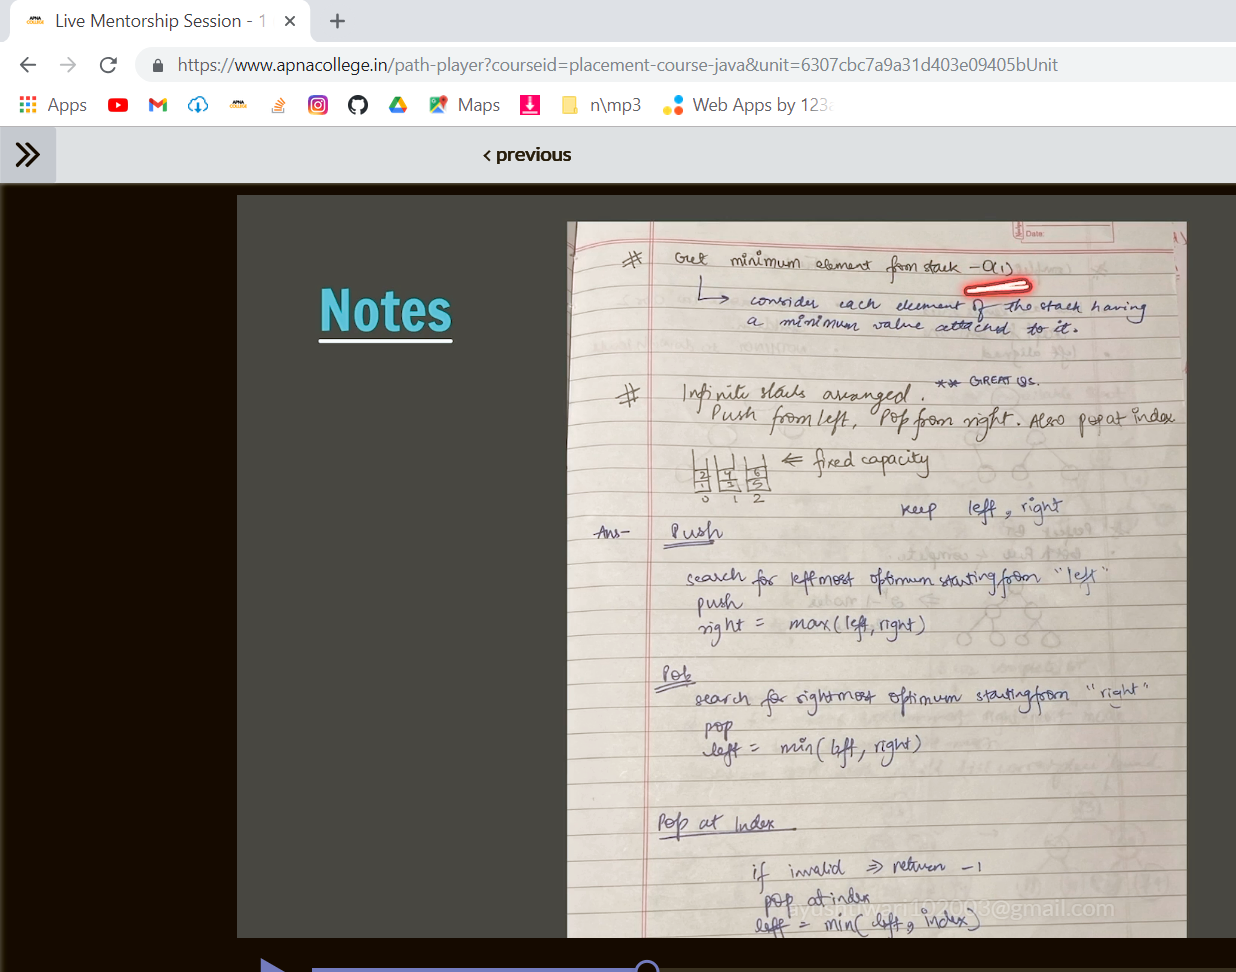 Live Mentorship Session - 1
https://www.apnacollege.in/path-player?courseid=placement-course-java&unit=6307cbc7a9a31d403e09405bUnit
Apps
Maps
n\mp3
Web Apps by 123a
< previous
Notes
Date:
# Get minimum element from stack - O(1)
consider each element of the stack having
a minimum value attached to it.
# Infinite stacks arranged. ** GREAT QS.
Push from left, Pop from right. Also pop at index
2 4 6 ⇐ fixed capacity
1 3 5
0 1 2
keep left, right
Ans- Push
search for leftmost optimum starting from "left"
push
right = max(left, right)
Pop
search for rightmost optimum starting from "right"
pop
left = min(left, right)
Pop at Index
if invalid ⇒ return -1
pop at index
left = min(left, index)